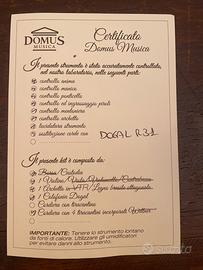 DOMUS
MUSICA
Certificato
Domus Musica
Il presente strumento è stato accuratamente controllato,
nel nostro laboratorio, nelle seguenti parti:
controllo anima
controllo manico
controllo ponticello
controllo ed ingrassaggio piroli
controllo montatura
controllo archetto
lucidatura strumento
sostituzione corde con DOGAL R31
Il presente kit è composto da:
Borsa / Custodia
1 Violino / Viola / Violoncello / Contrabbasso
1 Archetto in VTR / Legno
1 Colofonia Dogal
Cordiera con tiracantino
Cordiera con 4 tiracantini incorporati Wittner
IMPORTANTE: Tenere lo strumento lontano
da fonti di calore. Utilizzare gli umidificatori
per evitare danni allo strumento.
subito